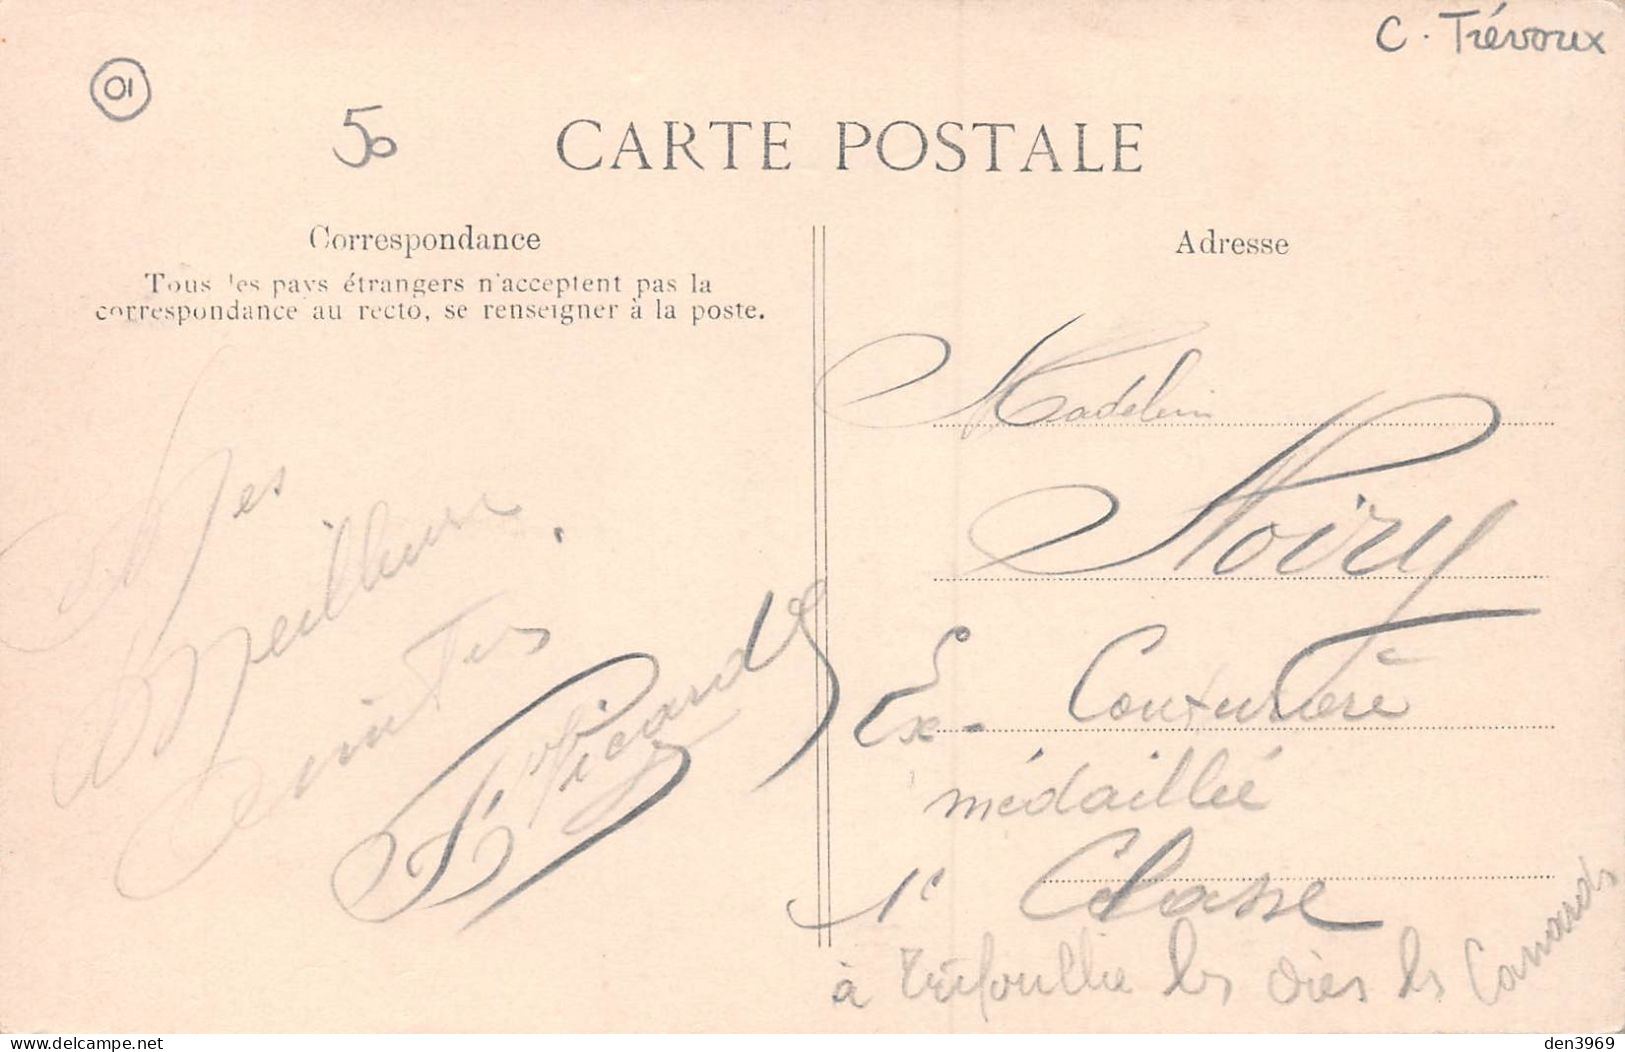 C. Trévoux
01
50
CARTE POSTALE
Correspondance
Tous les pays étrangers n'acceptent pas la
correspondance au recto, se renseigner à la poste.
Mes
Meilleurs
Amitiés
Picard
Adresse
Madelein
Noiry
Ex-Couturière
médaillée
1e Classe
à Trifouillie les Oies les Canards
den3969